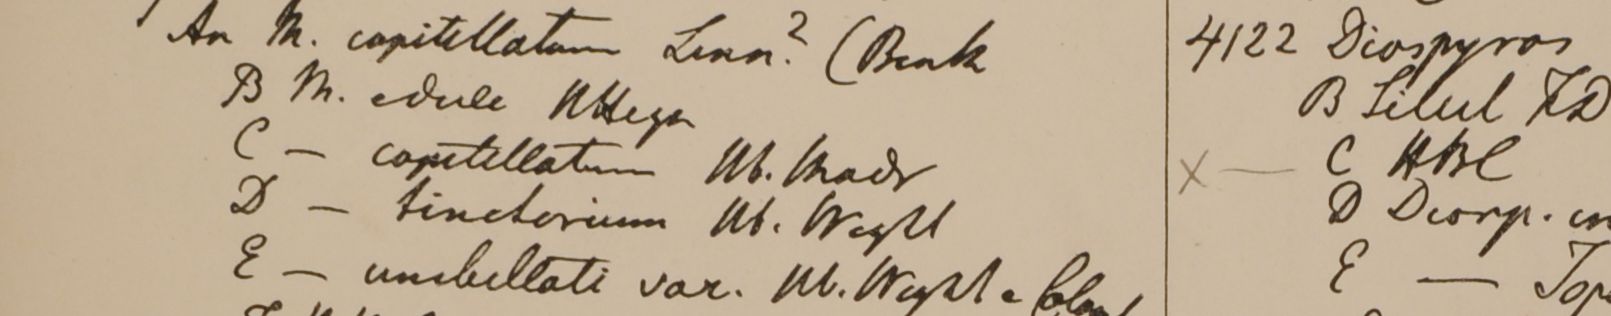 An M. capitellatum Linn? (Bink
B M. edule HHeyn
C — capitellatum Hb. Madr
D — tinctorium Hb. Wight
E — umbellati var. Hb. Wight e Colomb
4122 Diospyros
B Silul FD
X — C HBC
D Diosp. in
E — Tope